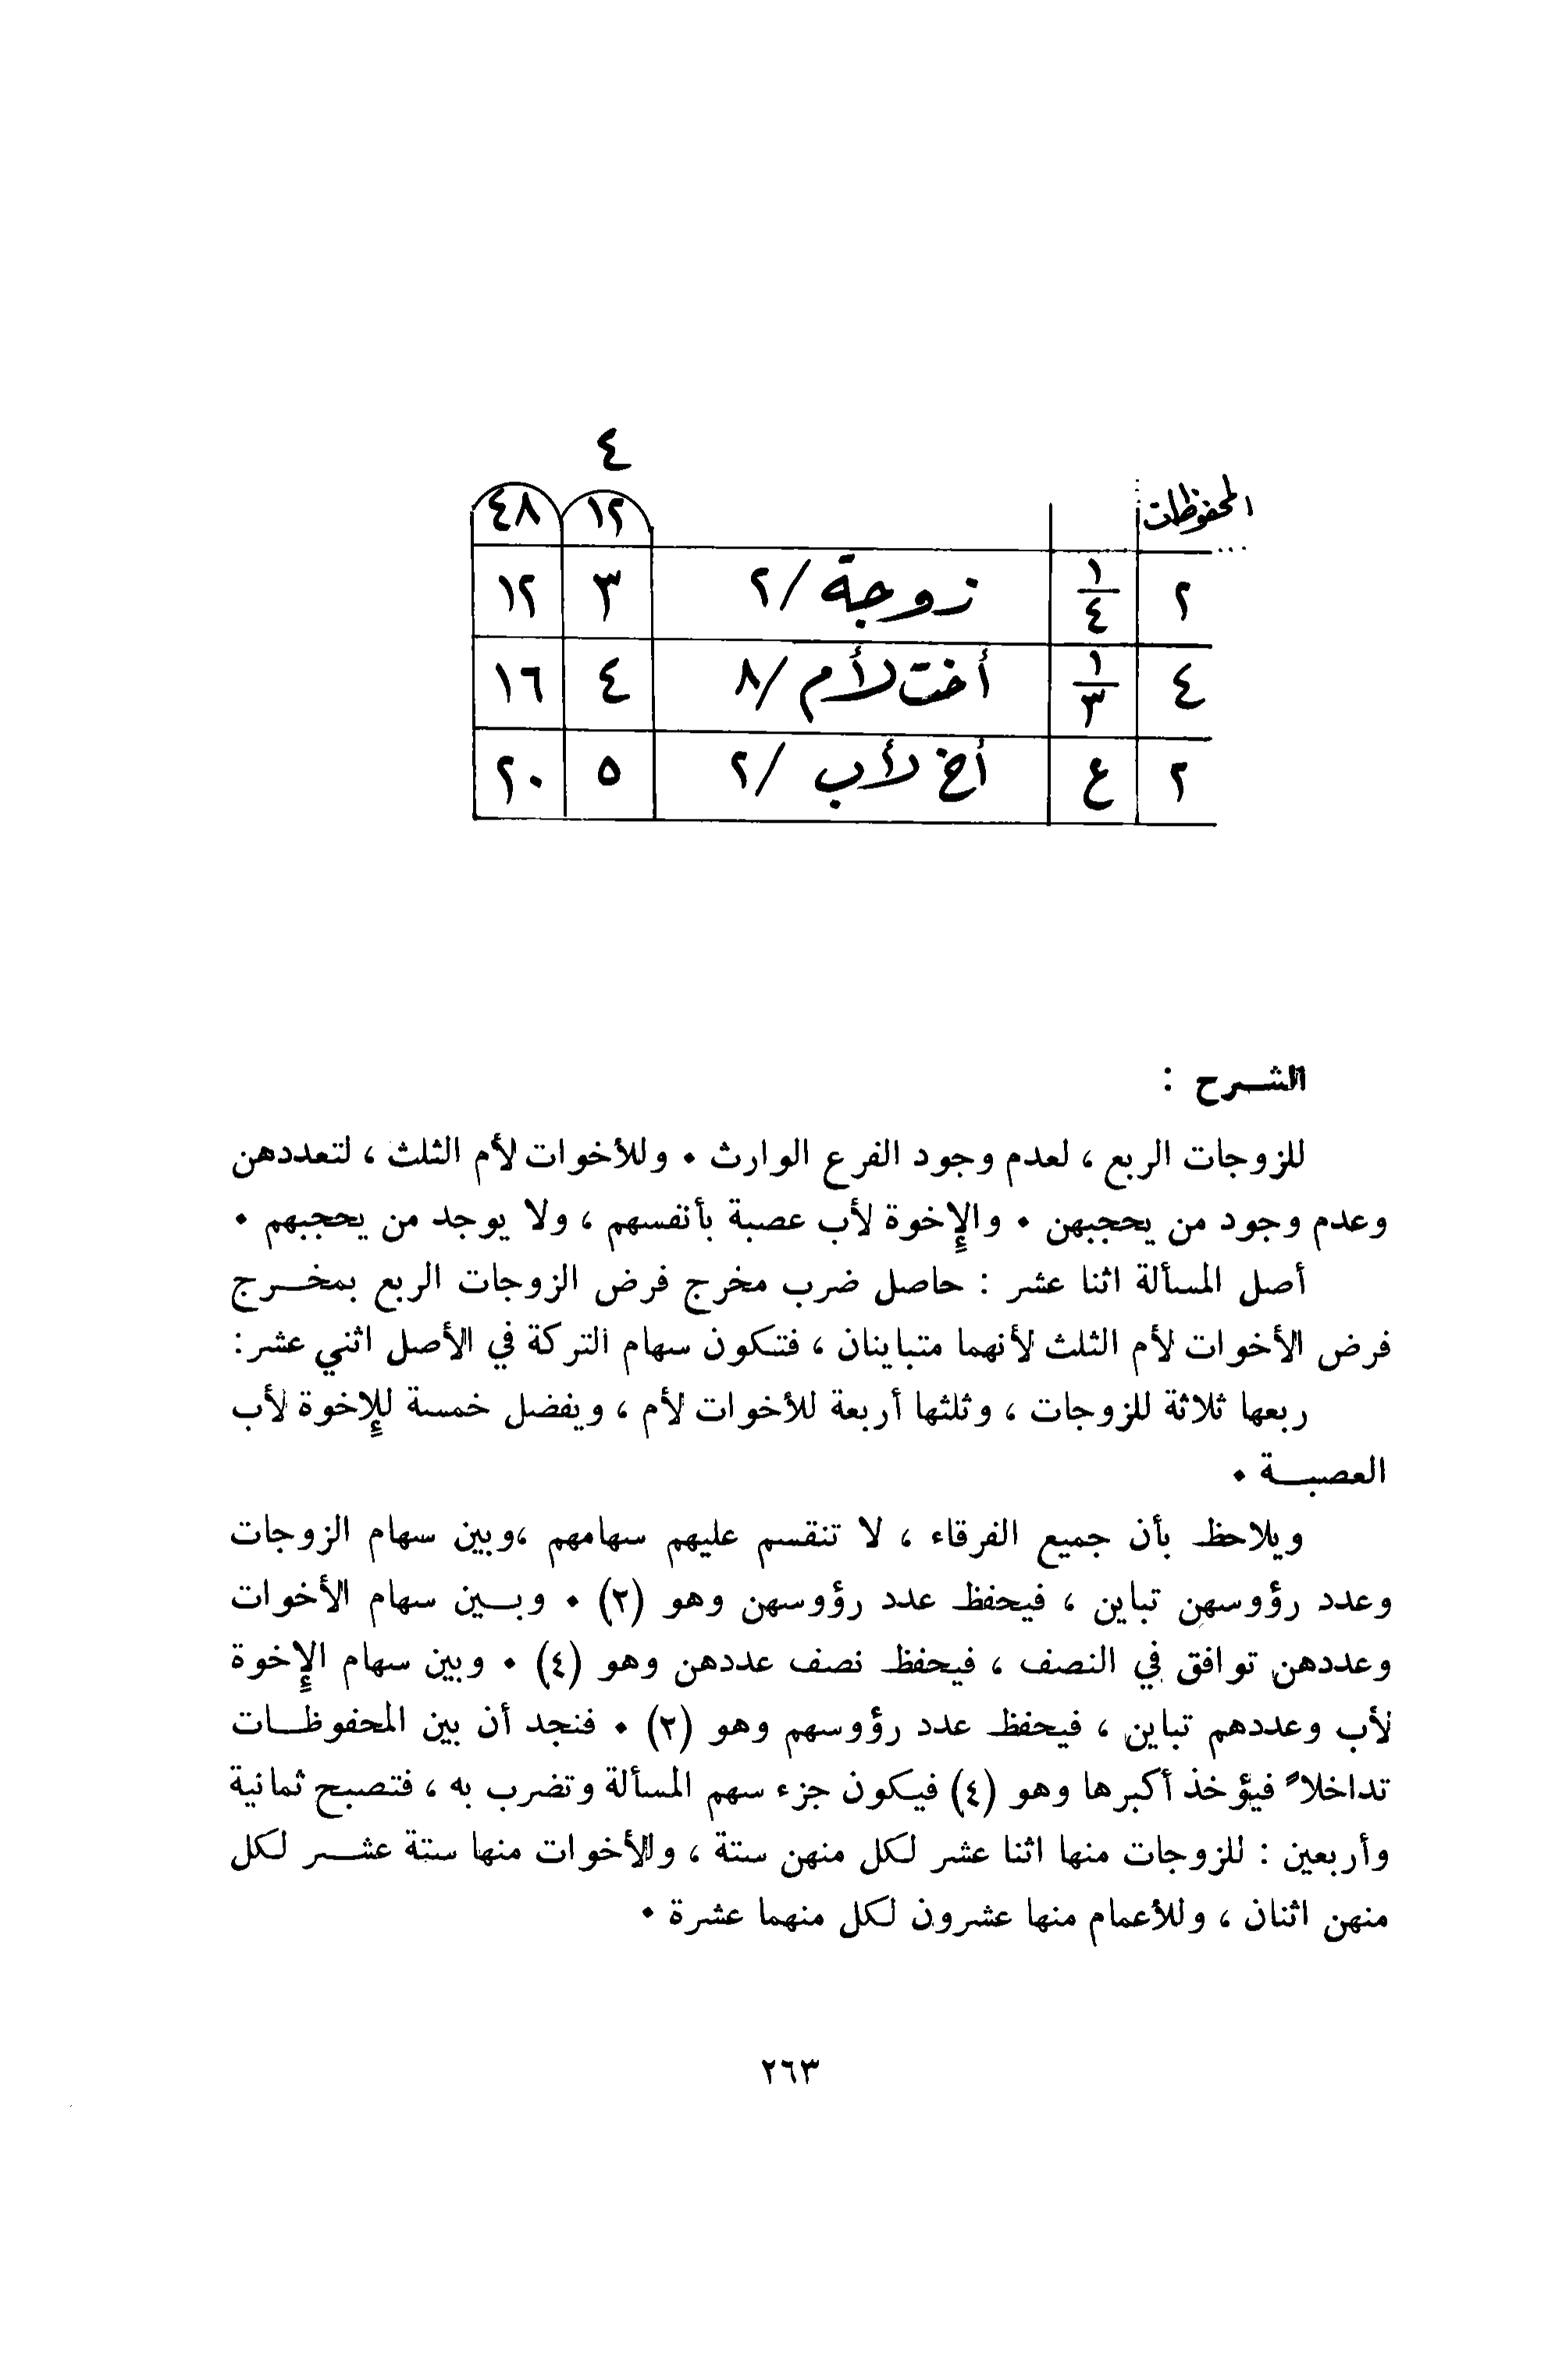 ٤
المحفوظات ١٢ ٤٨
٢ ١/٤ زوجة /٢ ٣ ١٢
٤ ١/٣ أخت لأم /٨ ٤ ١٦
٢ ع أخ لأب /٢ ٥ ٢٠
الشرح :
للزوجات الربع ، لعدم وجود الفرع الوارث . وللأخوات لأم الثلث ، لتعددهن
وعدم وجود من يحجبهن . والإخوة لأب عصبة بأنفسهم ، ولا يوجد من يحجبهم .
أصل المسألة اثنا عشر : حاصل ضرب مخرج فرض الزوجات الربع بمخرج
فرض الأخوات لأم الثلث لأنهما متباينان ، فتكون سهام التركة في الأصل اثني عشر:
ربعها ثلاثة للزوجات ، وثلثها أربعة للأخوات لأم ، ويفضل خمسة للإخوة لأب
العصبة .
ويلاحظ بأن جميع الفرقاء ، لا تنقسم عليهم سهامهم ،وبين سهام الزوجات
وعدد رؤوسهن تباين ، فيحفظ عدد رؤوسهن وهو (٢) . وبين سهام الأخوات
وعددهن توافق في النصف ، فيحفظ نصف عددهن وهو (٤) . وبين سهام الإخوة
لأب وعددهم تباين ، فيحفظ عدد رؤوسهم وهو (٢) . فنجد أن بين المحفوظات
تداخلاً فيؤخذ أكبرها وهو (٤) فيكون جزء سهم المسألة وتضرب به ، فتصبح ثمانية
وأربعين : للزوجات منها اثنا عشر لكل منهن ستة ، وللأخوات منها ستة عشر لكل
منهن اثنان ، وللأعمام منها عشرون لكل منهما عشرة .
٢٦٣